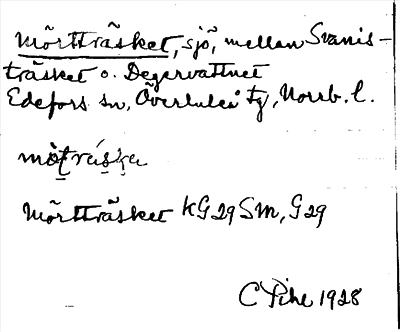 Mörtträsket, sjö, mellan Svanis-
träsket o. Degervattnet
Edefors sn, Överluleå tg, Norrb. l.
Mörtträsket KG29SM, G29
C Pihl 1928